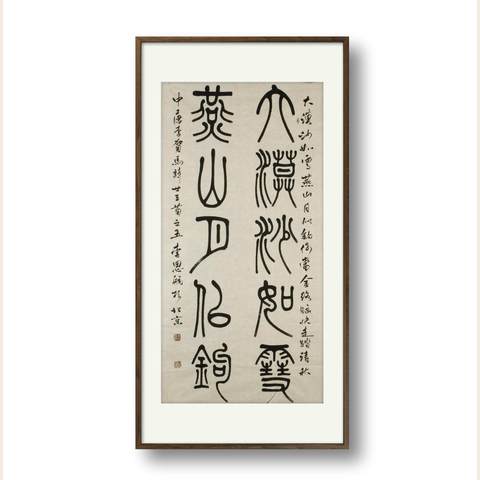 大漠沙如雪燕山月似鉤何當金絡腦快走踏清秋
大漠沙如雪
燕山月似鉤
中唐李賀馬詩廿三首之五李恩於北京